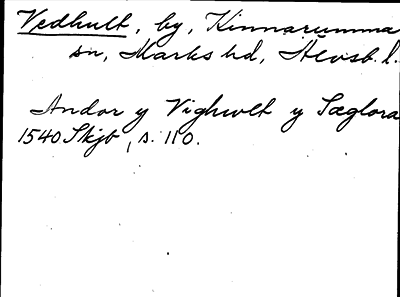 Vedhult, by, Kinnarumma
sn, Marks hd, Älvsb. l.
Andor y Vighwlt y Sæglora
1540 Skjb, s. 110.